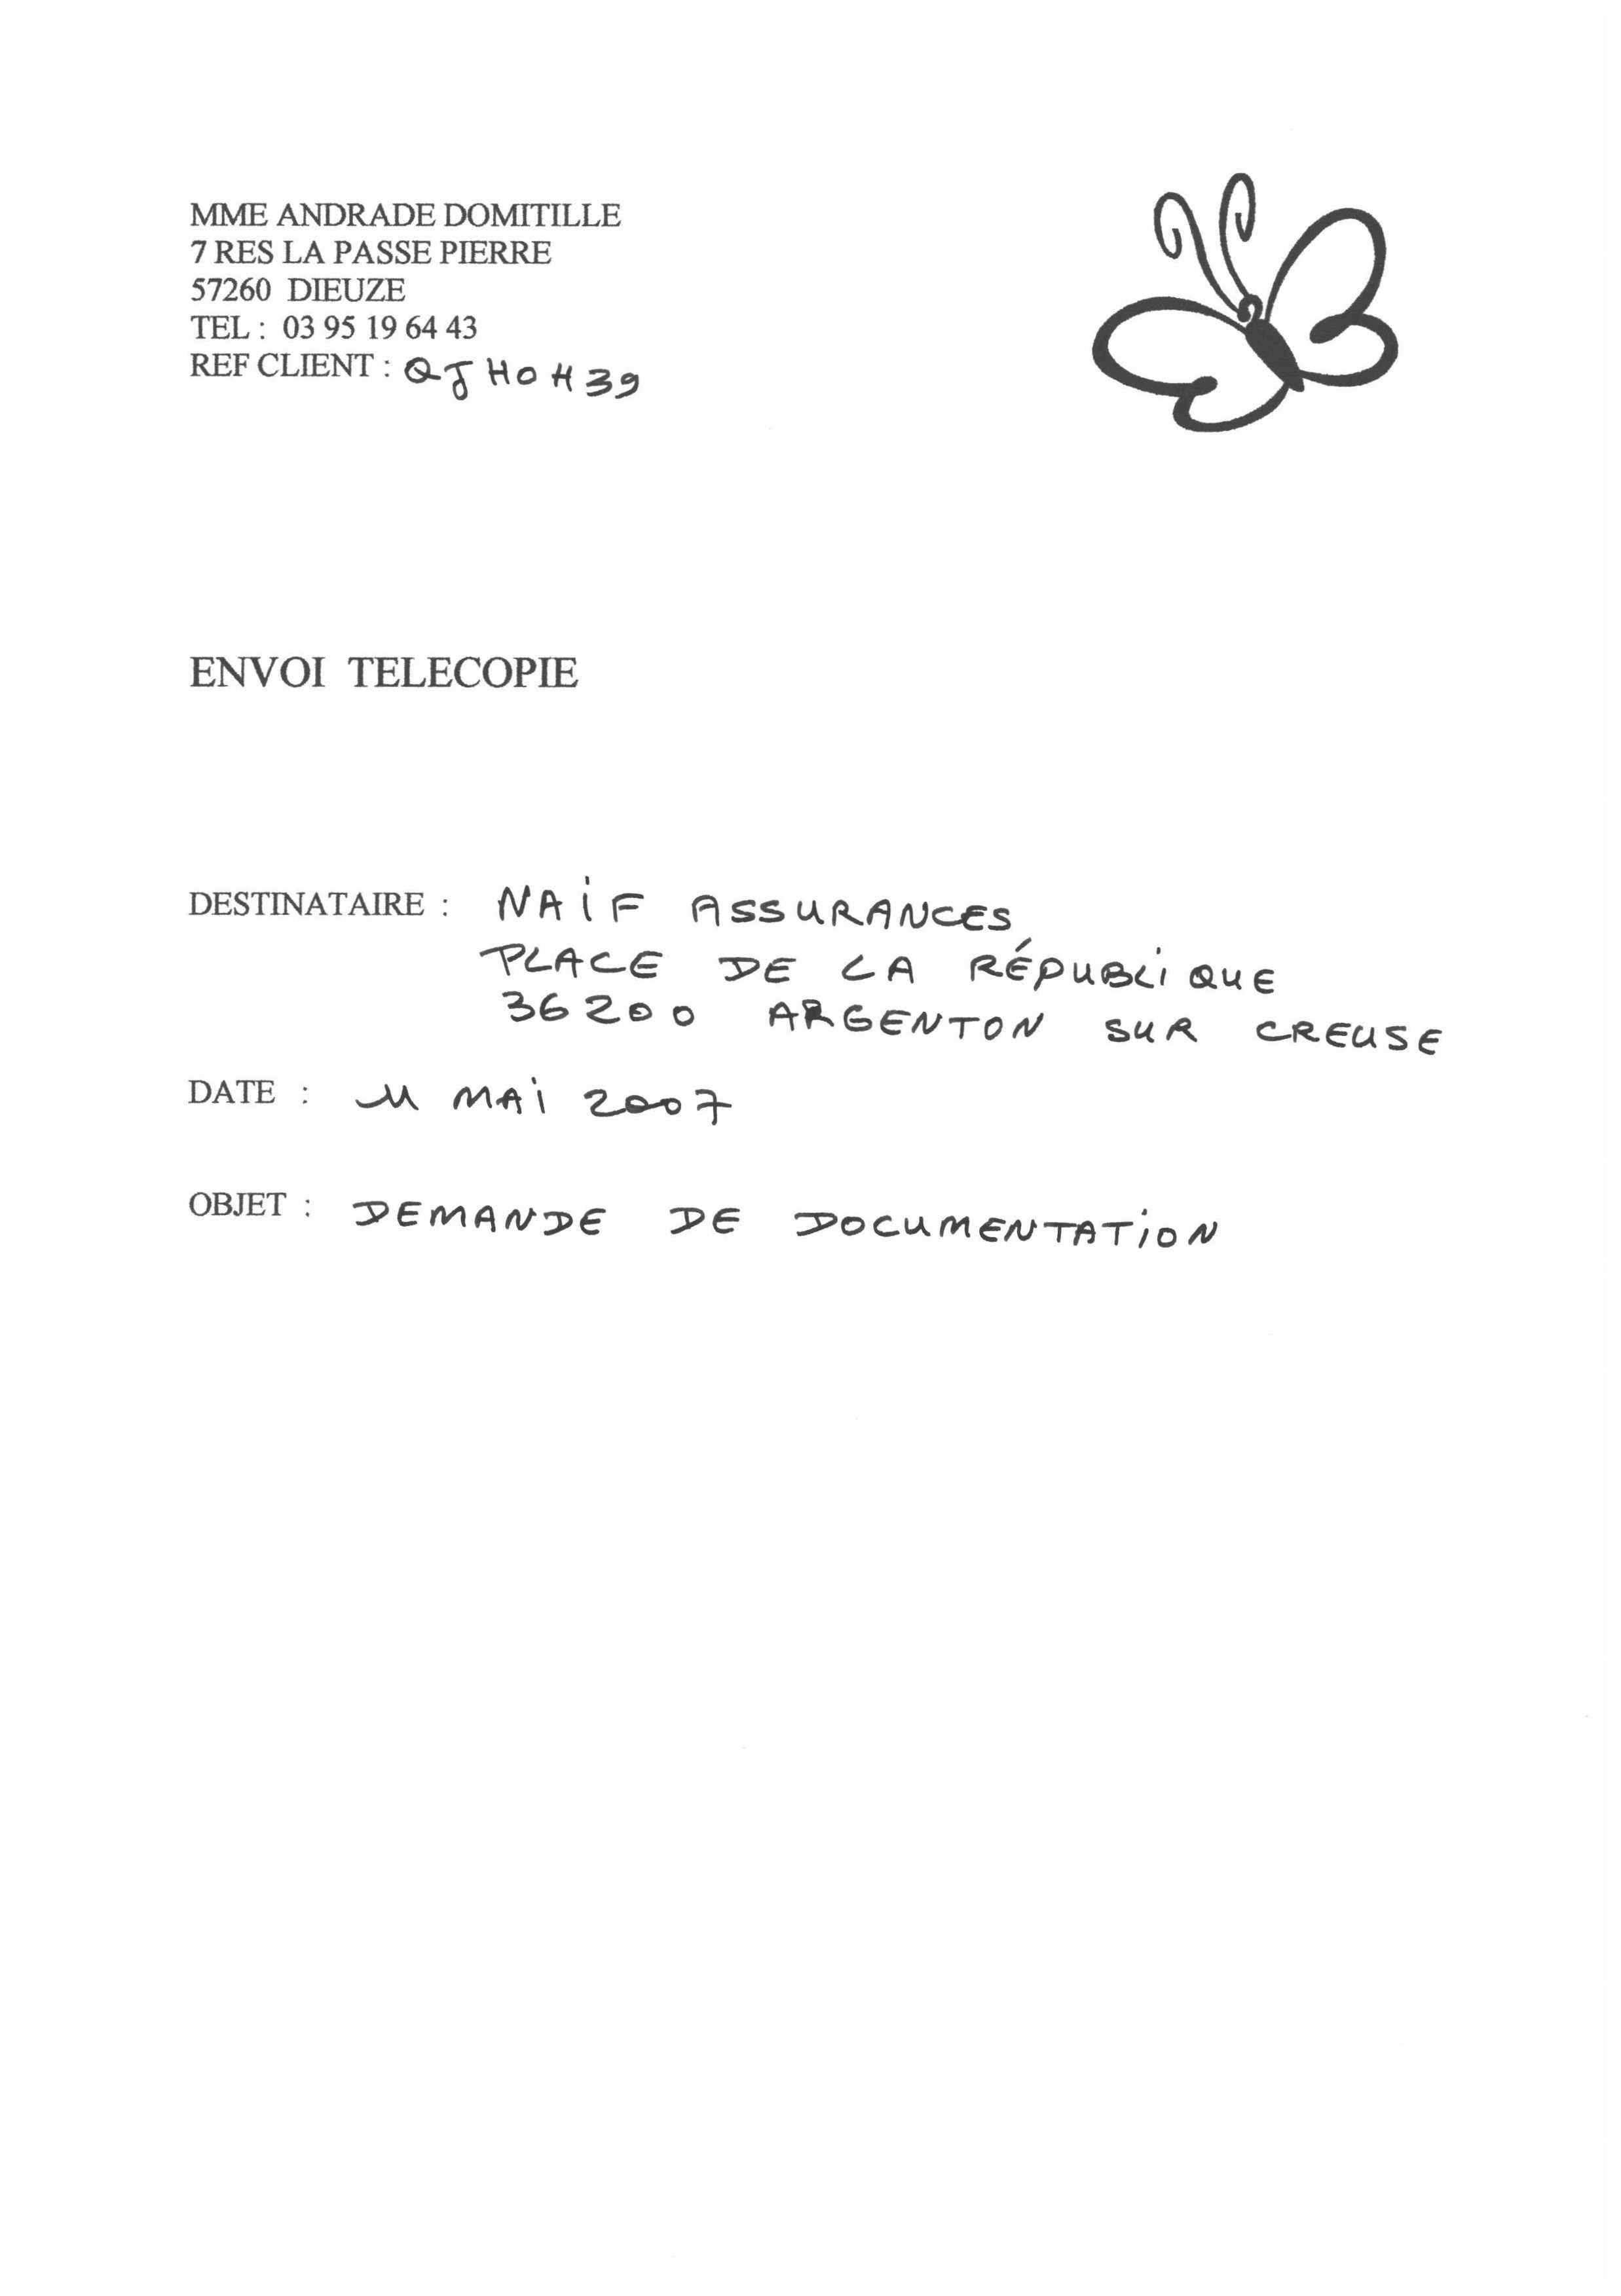 MME ANDRADE DOMITILLE
7 RES LA PASSE PIERRE
57260 DIEUZE
TEL : 03 95 19 64 43
REF CLIENT : QJH0H39
ENVOI TELECOPIE
DESTINATAIRE : NAIF ASSURANCES
PLACE DE LA RÉPUBLIQUE
36200 ARGENTON SUR CREUSE
DATE : 11 MAI 2007
OBJET : DEMANDE DE DOCUMENTATION